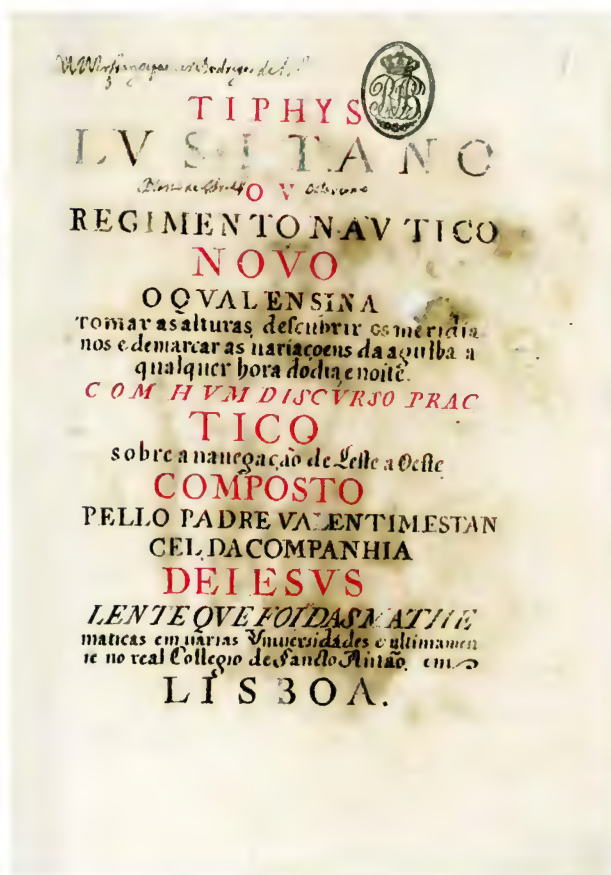 TIPHYS
LVSITANO
OV
REGIMENTO NAVTICO
NOVO
O QVAL ENSINA
tomar as alturas, descubrir os meridia
nos e demarcar as uariaçoens da agulha a
qualquer hora do dia, e noite.
COM HVM DISCVRSO PRAC
TICO
sobre a nauegação de Leste a Oeste
COMPOSTO
PELLO PADRE VALENTIM ESTAN
CEL, DA COMPANHIA
DE IESVS
LENTE QVE FOI DAS MATHE
maticas em uárias Vniuersidádes e ultimamen
te no real Collegio de Sancto Antão, em
LISBOA.